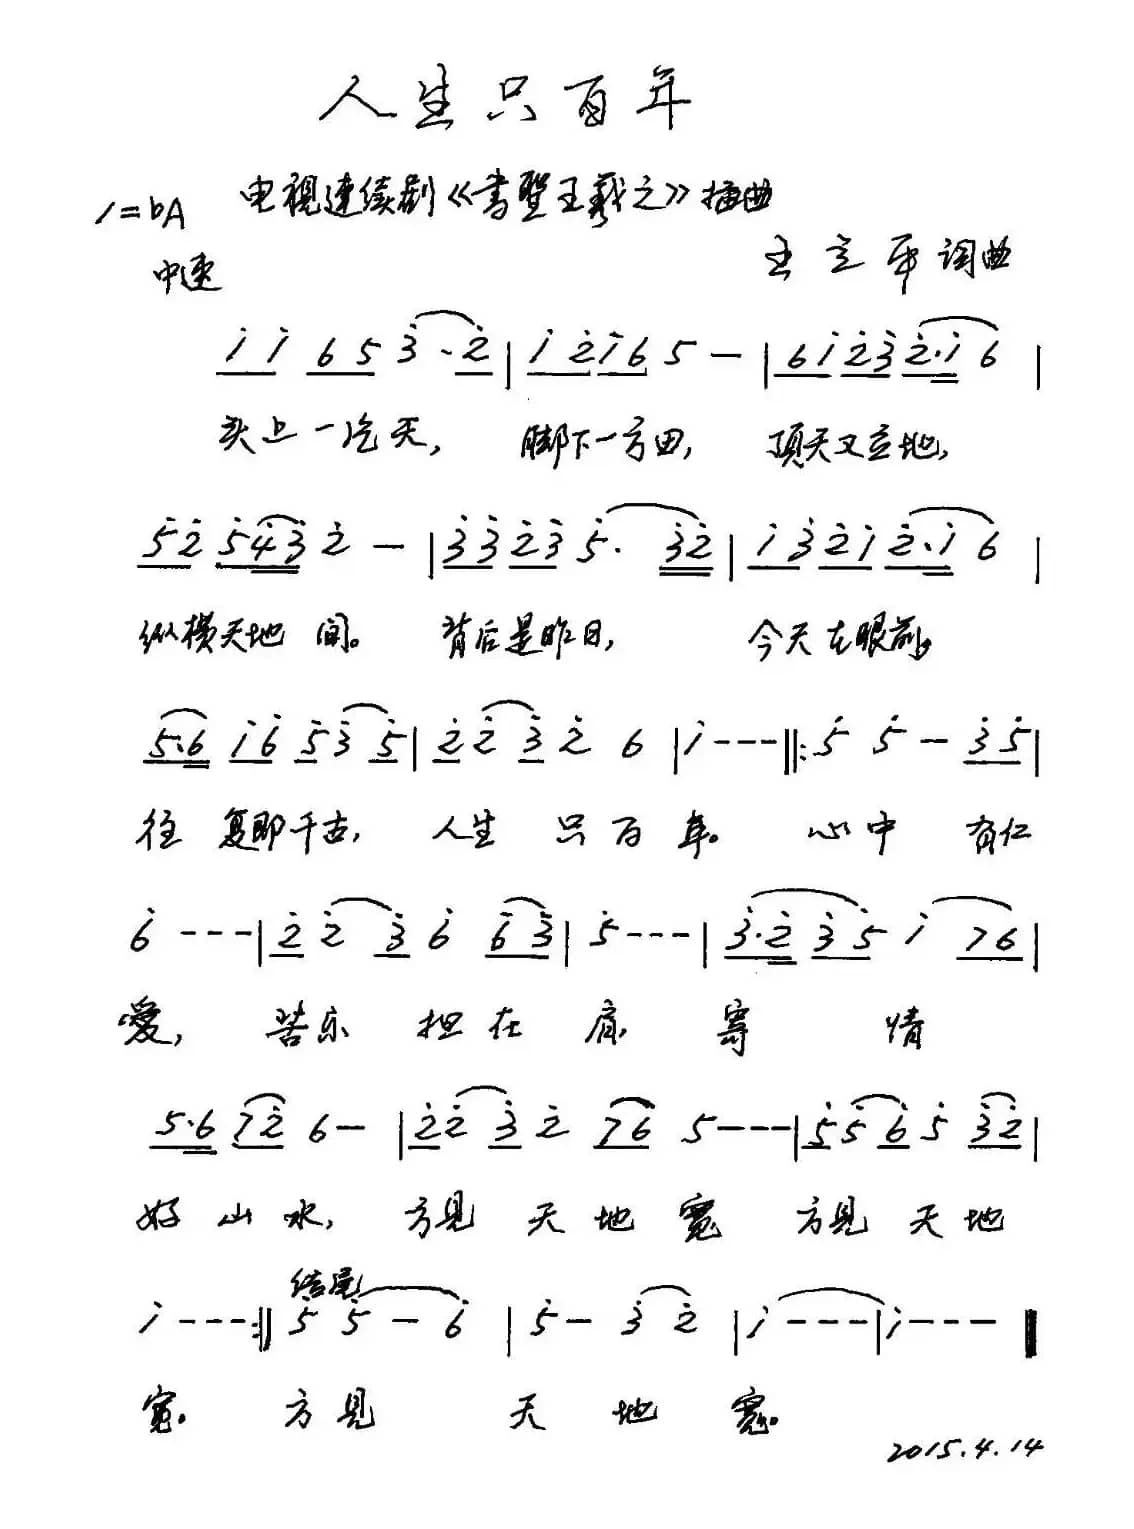 人生只百年
电视连续剧《书圣王羲之》插曲
1=bA
中速
王立平词曲
i i 6 5 3̇·2̇ | i 2̇ i 6 5 — | 6 i 2̇ 3̇ 2̇·i 6 |
头上一片天, 脚下一方田, 顶天又立地,
5̇ 2̇ 5̇ 4̇ 3̇ 2̇ — | 3̇ 3̇ 2̇ 3̇ 5̇· 3̇ 2̇ | i 3̇ 2̇ i 2̇·i 6 |
纵横天地间。 背后是昨日, 今天在眼前,
5̇·6̇ i 6̇ 5̇ 3̇ 5̇ | 2̇ 2̇ 3̇ 2̇ 6 | i - - - ‖: 5̇ 5̇ — 3̇ 5̇ |
往复即千古, 人生只百年。 心中有仁
6̇ - - - | 2̇ 2̇ 3̇ 6̇ 6̇ 3̇ | 5̇ - - - | 3̇·2̇ 3̇ 5̇ i 7 6 |
爱, 苦乐担在肩, 寄情
5·6 7 2̇ 6 — | 2̇ 2̇ 3̇ 2̇ 7 6 5 - - - | 5̇ 5̇ 6̇ 5̇ 3̇ 2̇ |
好山水, 方见天地宽 方见天地
结尾
i - - - :‖ 5̇ 5̇ — 6̇ | 5̇ — 3̇ 2̇ | i - - - | i - - - ‖
宽。 方见天地宽。
2015.4.14